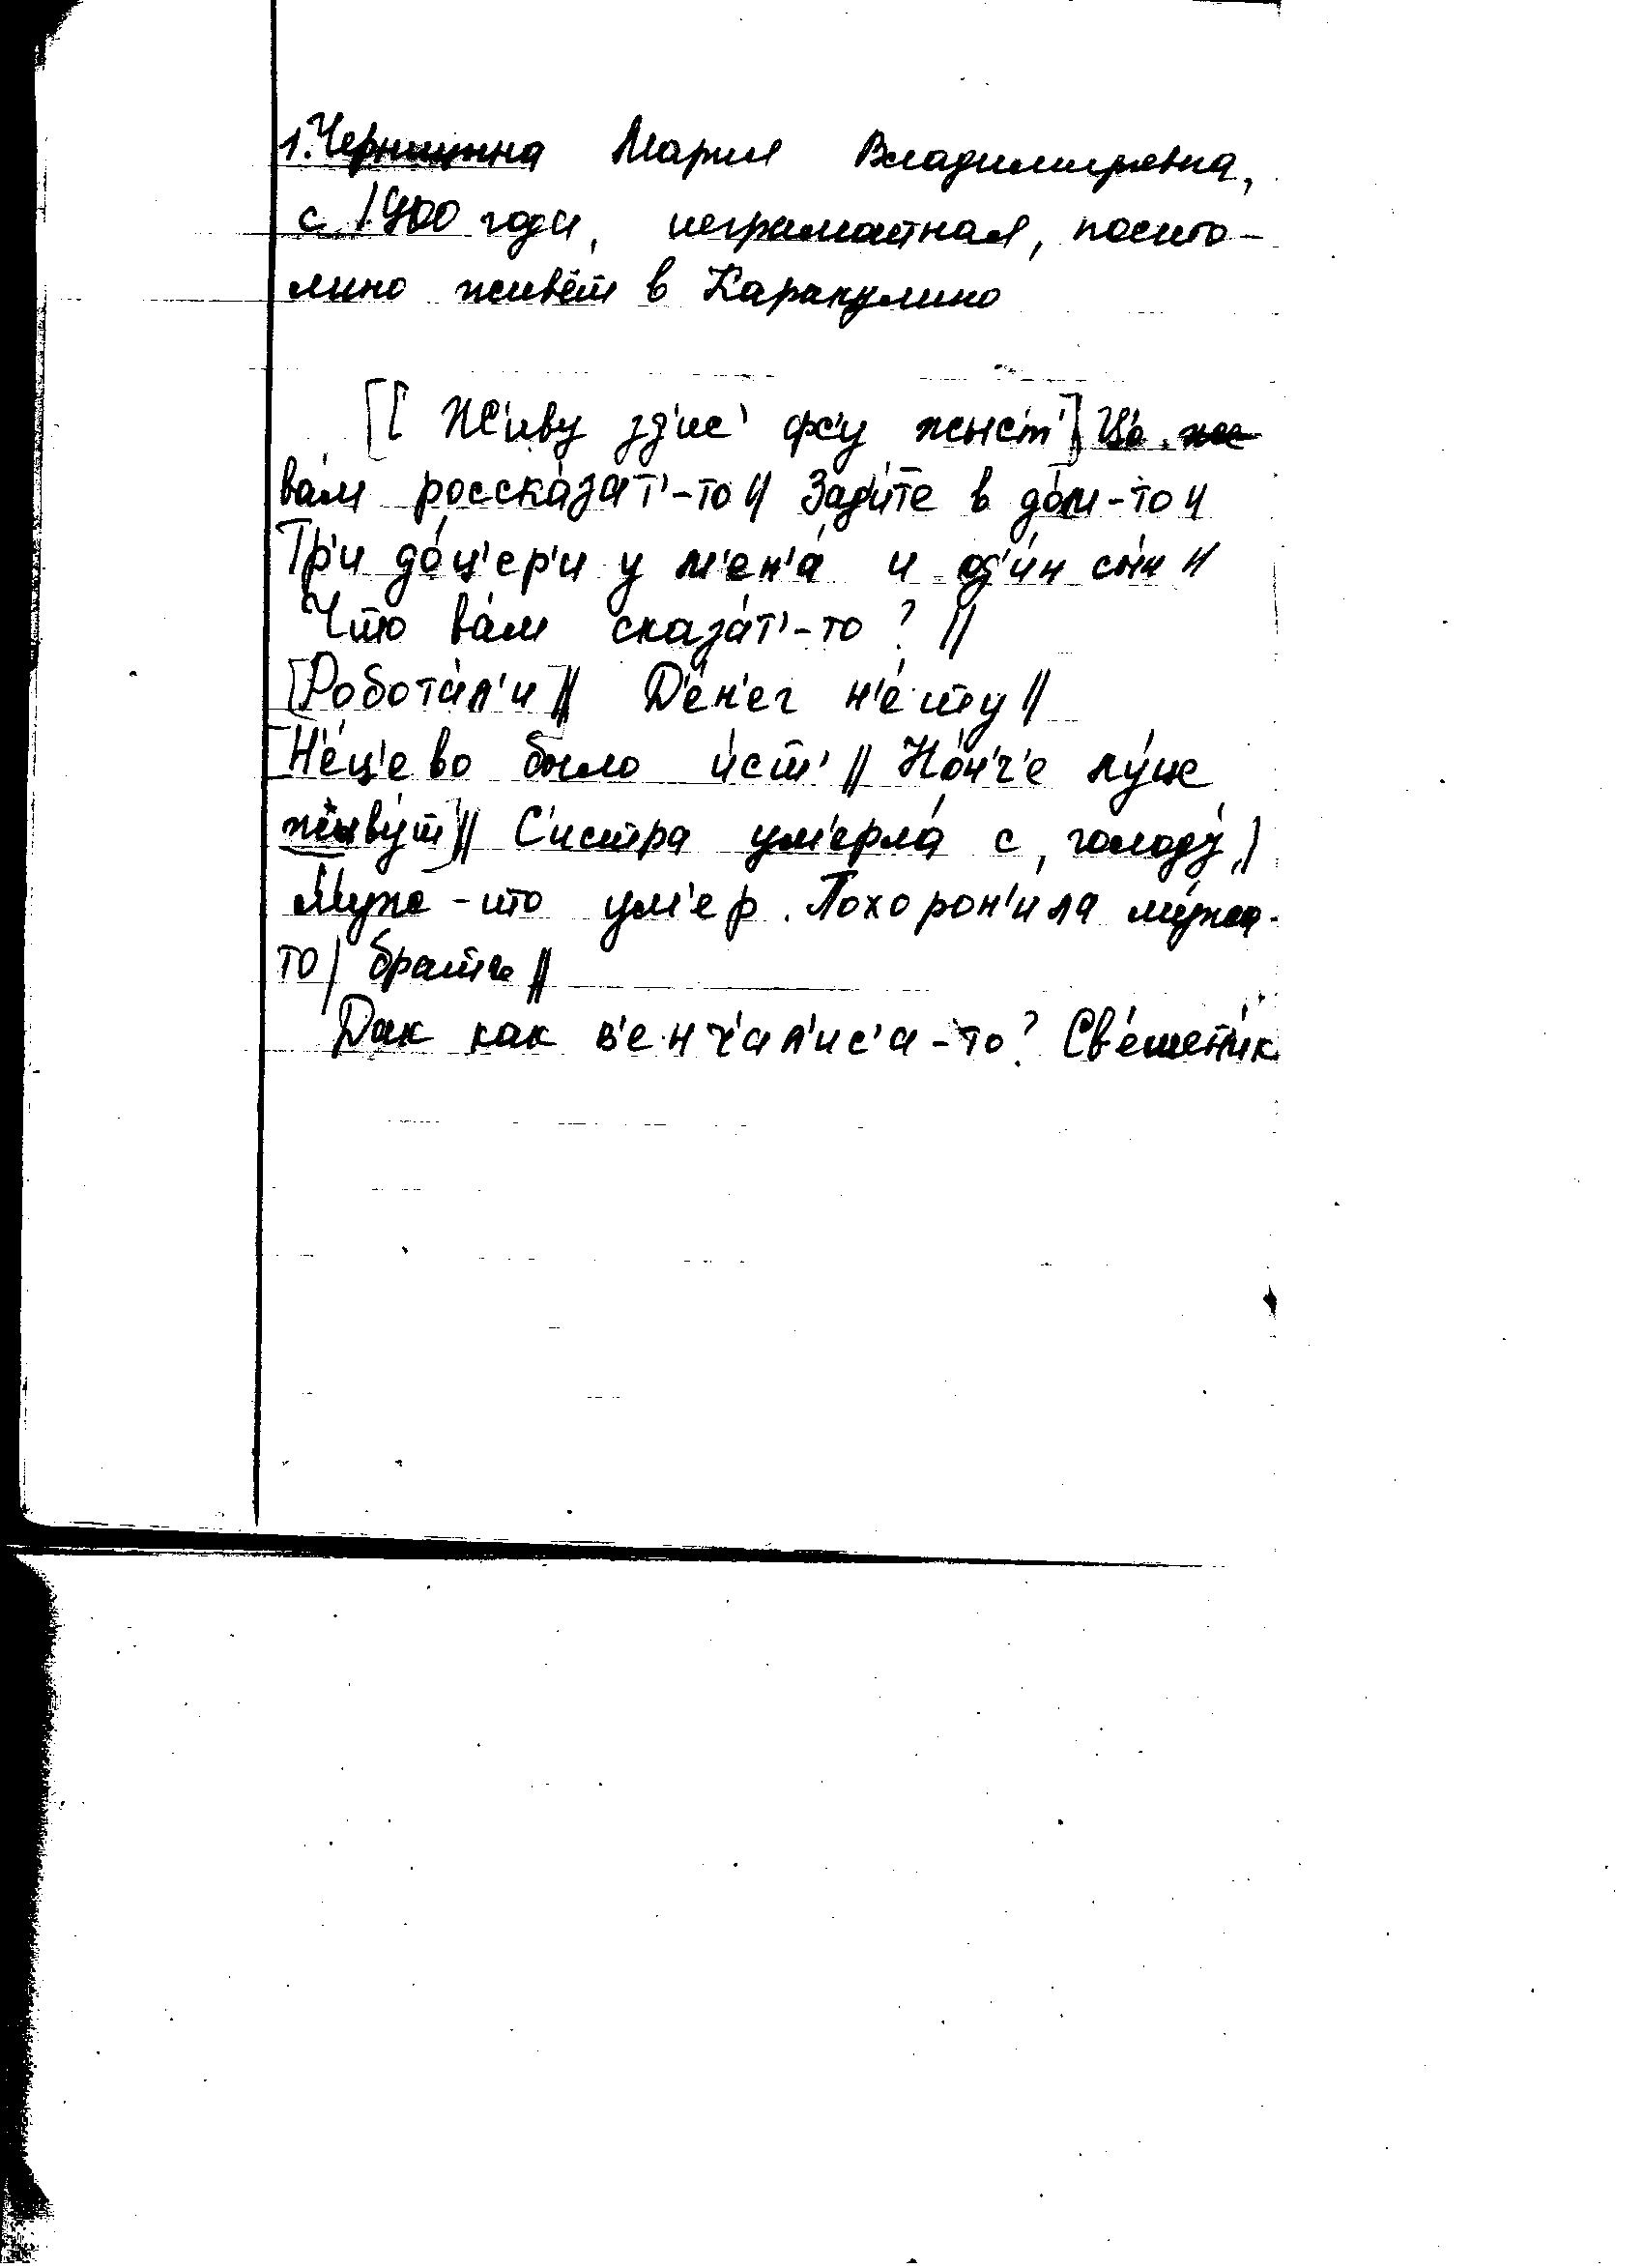 1. Чернищина Мария Владимировна,
с 1900 года, неграмотная, посто-
янно живёт в Каракулино
[[ Ж'иву зд'ис' фс'у жыст'] Цо
ва́м росска́зат'-то // Зад'и́те в до́м-то //
Тр'и до́ц'ер'и у м'ен'а́ и од'и́н сы́н //
Что ва́м сказа́т'-то? //
[Робота́л'и] // Д'е́н'ег н'е́ту //
[Н'е́ц'ево было и́ст' // Но́н'ч'е лу́це
жыву́т] // С'истра ум'ерла́ с голоду́ //
Муже-то ум'ер. Похорон'ила му́жа-
то / брата //
Дак как в'енч'а́л'ис'а-то? Св'е́шен'ик